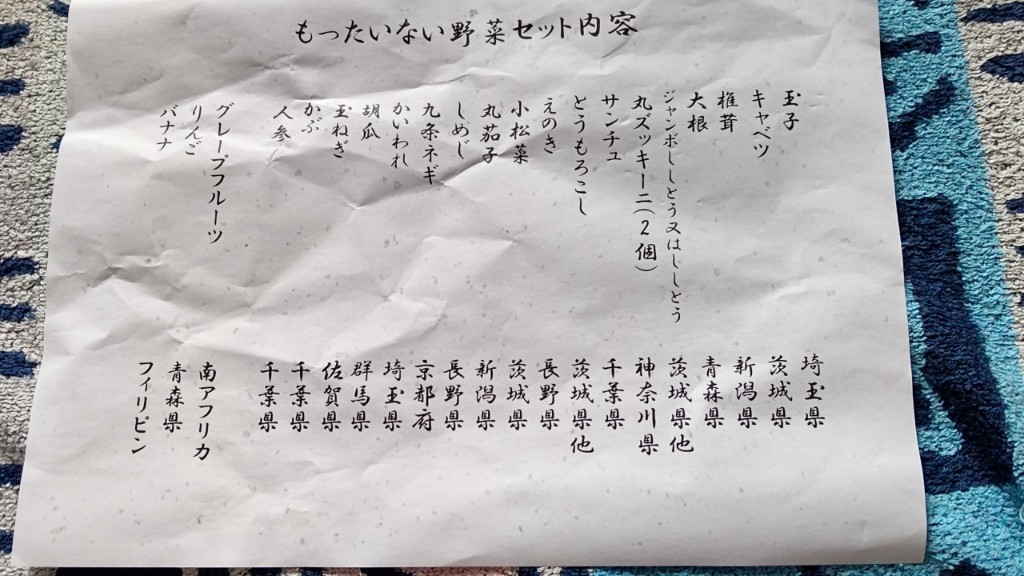 もったいない野菜セット内容
玉子 埼玉県
キャベツ 茨城県
椎茸 新潟県
大根 青森県
ジャンボししとう又はししとう 茨城県他
丸ズッキーニ(2個) 神奈川県
サンチュ 千葉県
とうもろこし 茨城県他
えのき 長野県
小松菜 茨城県
丸茄子 新潟県
しめじ 長野県
九条ネギ 京都府
かいわれ 埼玉県
胡瓜 群馬県
玉ねぎ 佐賀県
かぶ 千葉県
人参 千葉県
グレープフルーツ 南アフリカ
りんご 青森県
バナナ フィリピン